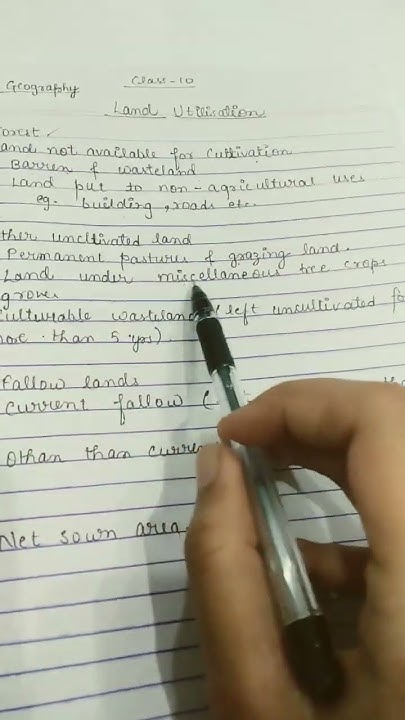 Geography Class-10
Land Utilisation
orest ✓
and not available for Cultivation
Barren & wasteland
Land put to non-agricultural uses
eg. building, roads etc.
ther uncltivated land
Permanent pastures & grazing land.
Land under miscellaneous tree crops
grove
ulturable wasteland (left uncultivated fo
ore than 5 yrs).
Fallow lands
Current fallow (
Othan than curre
Net sown area.